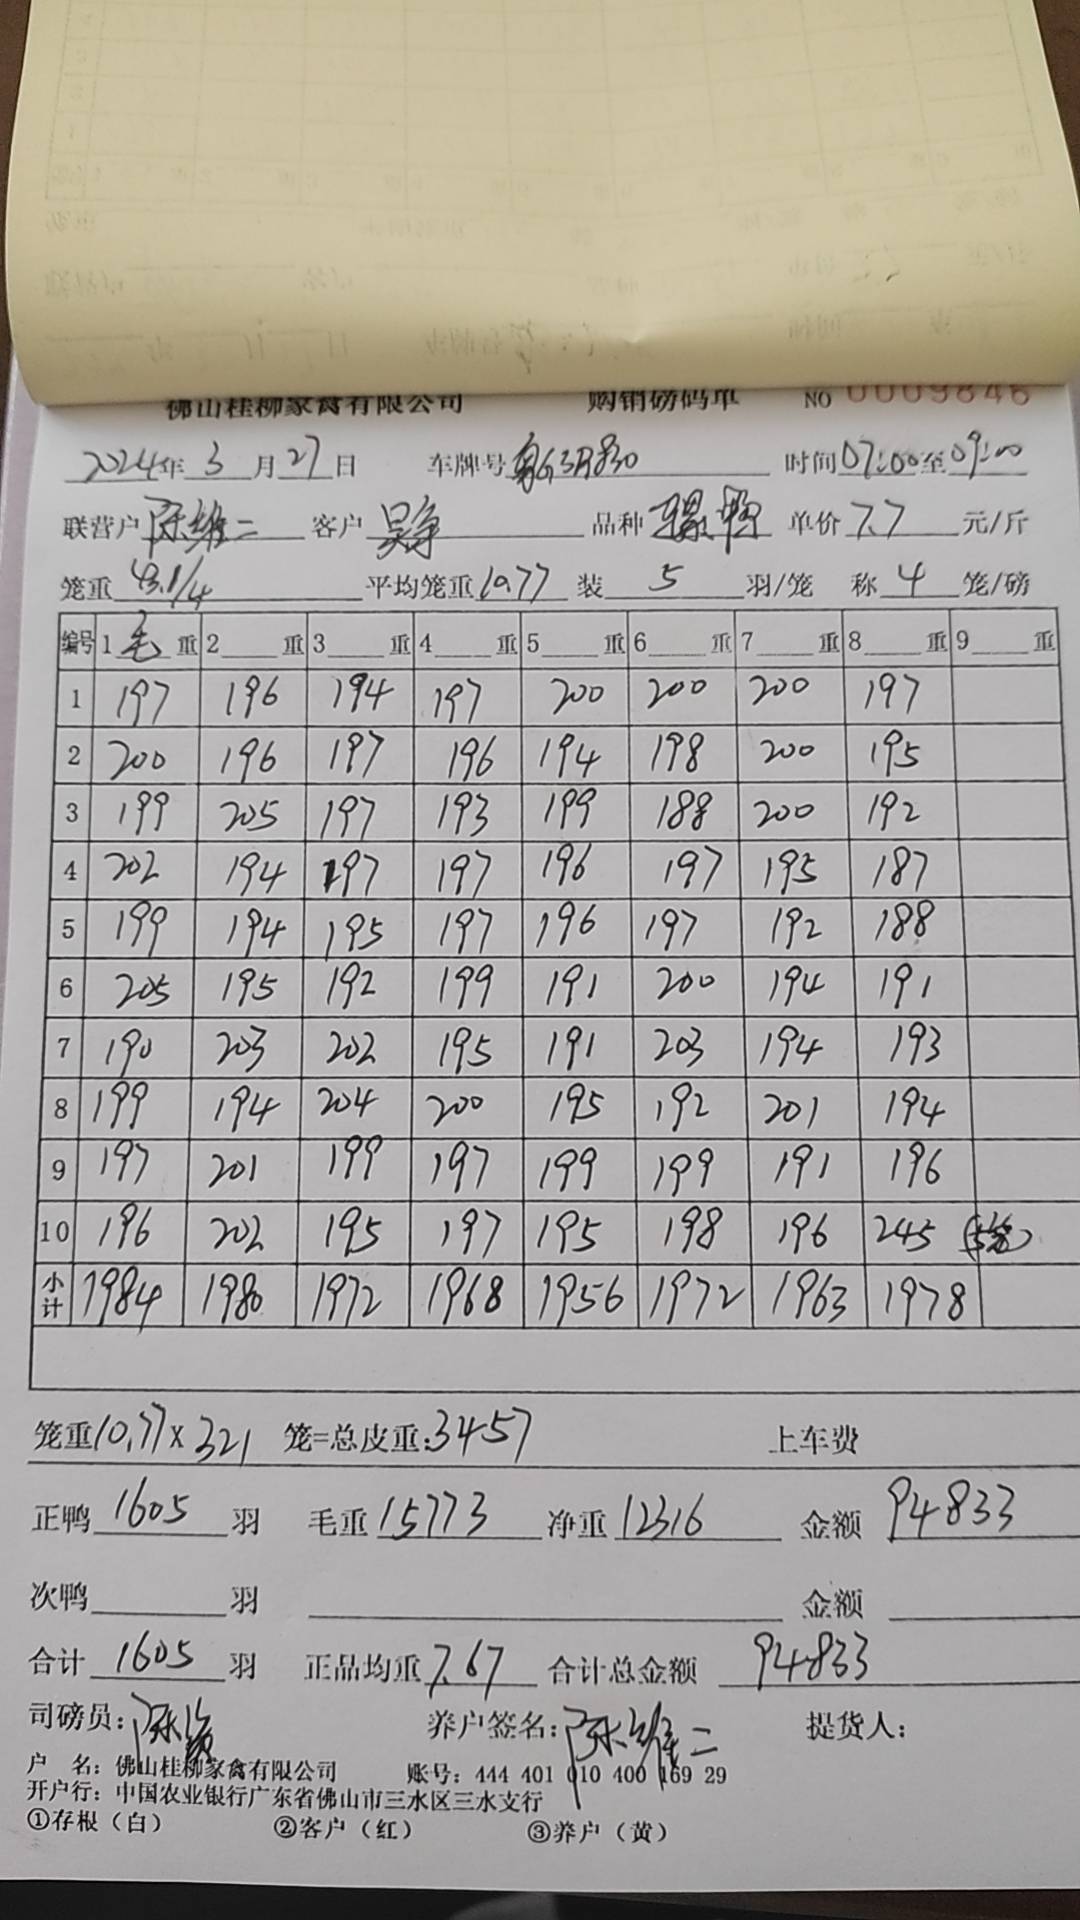 佛山桂柳家禽有限公司 购销磅码单 NO 0009846
2024年3月27日 车牌号 时间07:00至09:00
联营户陈维二 客户吴争 品种骡鸭 单价7.7元/斤
笼重43.1/4 平均笼重10.77 装5羽/笼 称4笼/磅
编号 1毛重 2重 3重 4重 5重 6重 7重 8重 9重
1 197 196 194 197 200 200 200 197
2 200 196 197 196 194 198 200 195
3 199 205 197 193 199 188 200 192
4 202 194 197 197 196 197 195 187
5 199 194 195 197 196 197 192 188
6 205 195 192 199 191 200 194 191
7 190 203 202 195 191 203 194 193
8 199 194 204 200 195 192 201 194
9 197 201 199 197 199 199 191 196
10 196 202 195 197 195 198 196 245 (5笼)
小计 1984 1980 1972 1968 1956 1972 1963 1978
笼重10.77×321笼=总皮重:3457 上车费
正鸭1605羽 毛重15773 净重12316 金额94833
次鸭 羽 金额
合计1605羽 正品均重7.67 合计总金额94833
司磅员: 养户签名:陈维二 提货人:
户 名:佛山桂柳家禽有限公司 账号:444 401 010 400 169 29
开户行:中国农业银行广东省佛山市三水区三水支行
①存根(白) ②客户(红) ③养户(黄)